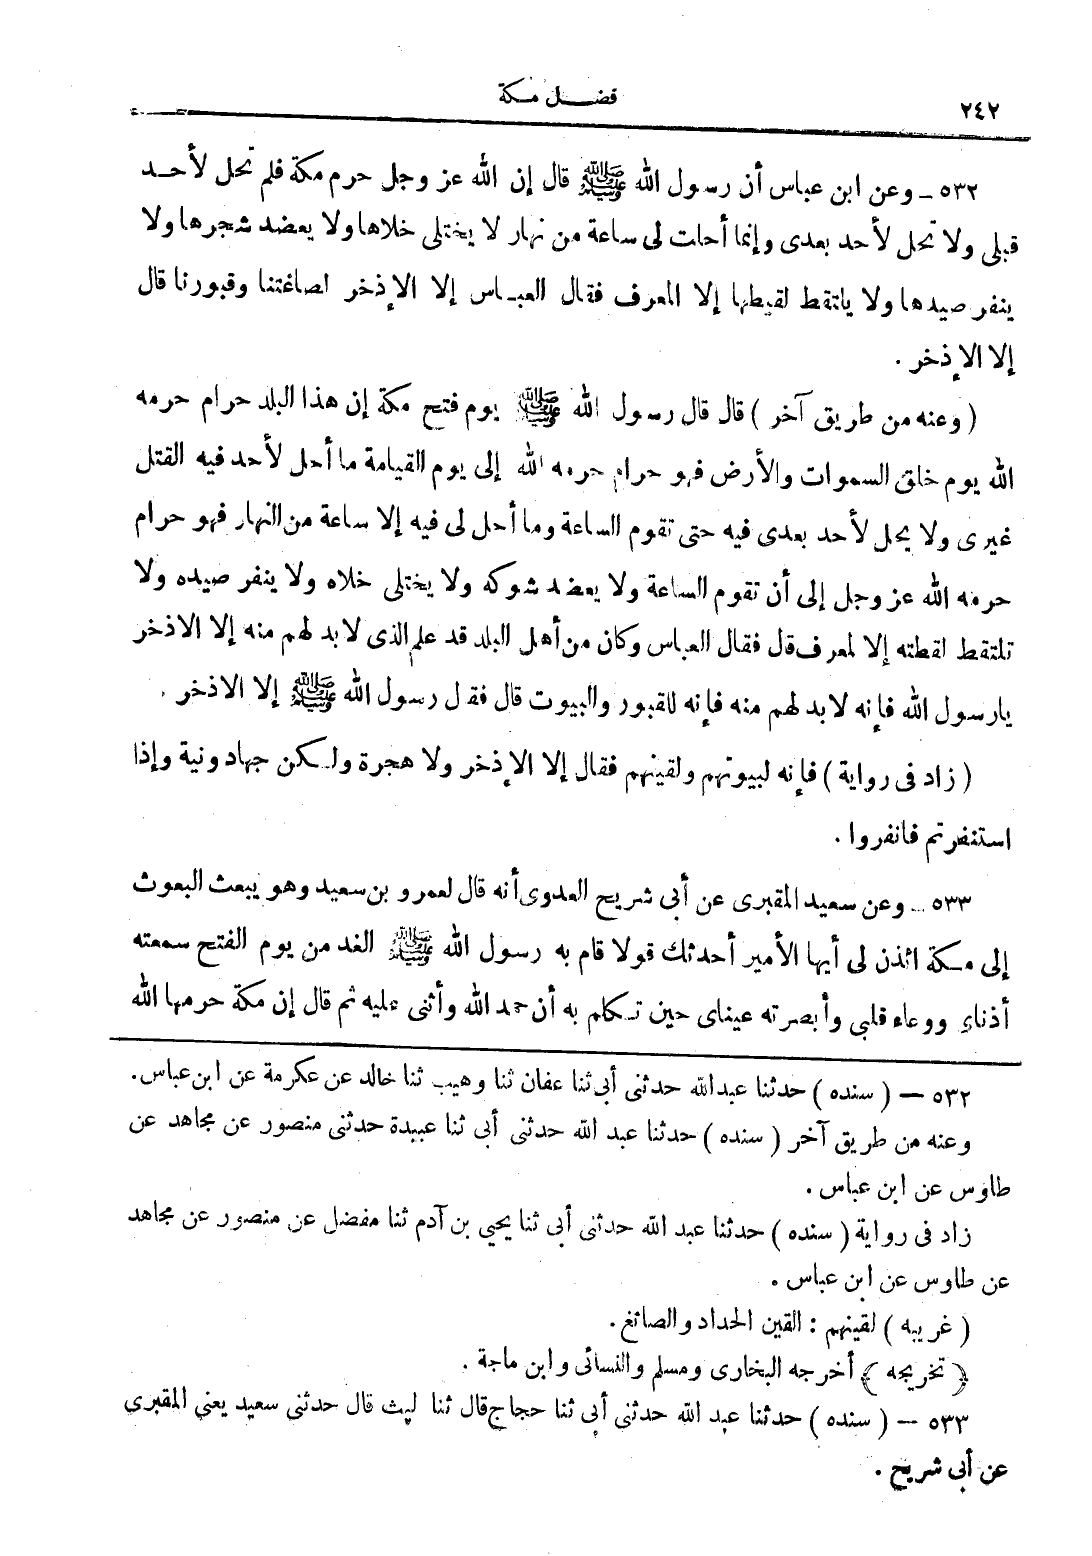 ٢٤٢
فضل مكة
٥٣٢ - وعن ابن عباس أن رسول الله ﷺ قال إن الله عز وجل حرم مكة فلم تحل لأحد
قبلى ولا تحل لأحد بعدى وإنما أحلت لى ساعة من نهار لا يختلى خلاها ولا يعضد شجرها ولا
ينفر صيدها ولا يلتقط لقيطها إلا لمعرف فقال العباس إلا الإذخر لصاغتنا وقبورنا قال
إلا الإذخر .
( وعنه من طريق آخر ) قال قال رسول الله ﷺ يوم فتح مكة إن هذا البلد حرام حرمه
الله يوم خلق السموات والأرض فهو حرام حرمه الله إلى يوم القيامة ما أحل لأحد فيه القتل
غيرى ولا يحل لأحد بعدى فيه حتى تقوم الساعة وما أحل لى فيه إلا ساعة من النهار فهو حرام
حرمه الله عز وجل إلى أن تقوم الساعة ولا يعضد شوكه ولا يختلى خلاه ولا ينفر صيده ولا
تلتقط لقطته إلا لمعرف قال فقال العباس وكان من أهل البلد قد علم الذى لا بد لهم منه إلا الاذخر
يارسول الله فإنه لابد لهم منه فإنه للقبور والبيوت قال فقال رسول الله ﷺ إلا الاذخر .
( زاد فى رواية ) فإنه لبيوتهم ولقينهم فقال إلا الإذخر ولا هجرة ولكن جهاد ونية وإذا
استنفرتم فانفروا .
٥٣٣ - وعن سعيد المقبرى عن أبى شريح العدوى أنه قال لعمرو بن سعيد وهو يبعث البعوث
إلى مكة ائذن لى أيها الأمير أحدثك قولا قام به رسول الله ﷺ الغد من يوم الفتح سمعته
أذناى ووعاه قلبى وأبصرته عيناى حين تكلم به أن حمد الله وأثنى عليه ثم قال إن مكة حرمها الله
٥٣٢ — ( سنده ) حدثنا عبدالله حدثنى أبى ثنا عفان ثنا وهيب ثنا خالد عن عكرمة عن ابن عباس.
وعنه من طريق آخر ( سنده ) حدثنا عبد الله حدثنى أبى ثنا عبيدة حدثنى منصور عن مجاهد عن
طاوس عن ابن عباس .
زاد فى رواية ( سنده ) حدثنا عبد الله حدثنى أبى ثنا يحيى بن آدم ثنا مفضل عن منصور عن مجاهد
عن طاوس عن ابن عباس .
( غريبه ) لقينهم : القين الحداد والصائغ.
( تخريجه ) أخرجه البخارى ومسلم والنسائى وابن ماجة .
٥٣٣ — ( سنده ) حدثنا عبد الله حدثنى أبى ثنا حجاج قال ثنا ليث قال حدثنى سعيد يعني المقبرى
عن أبى شريح .